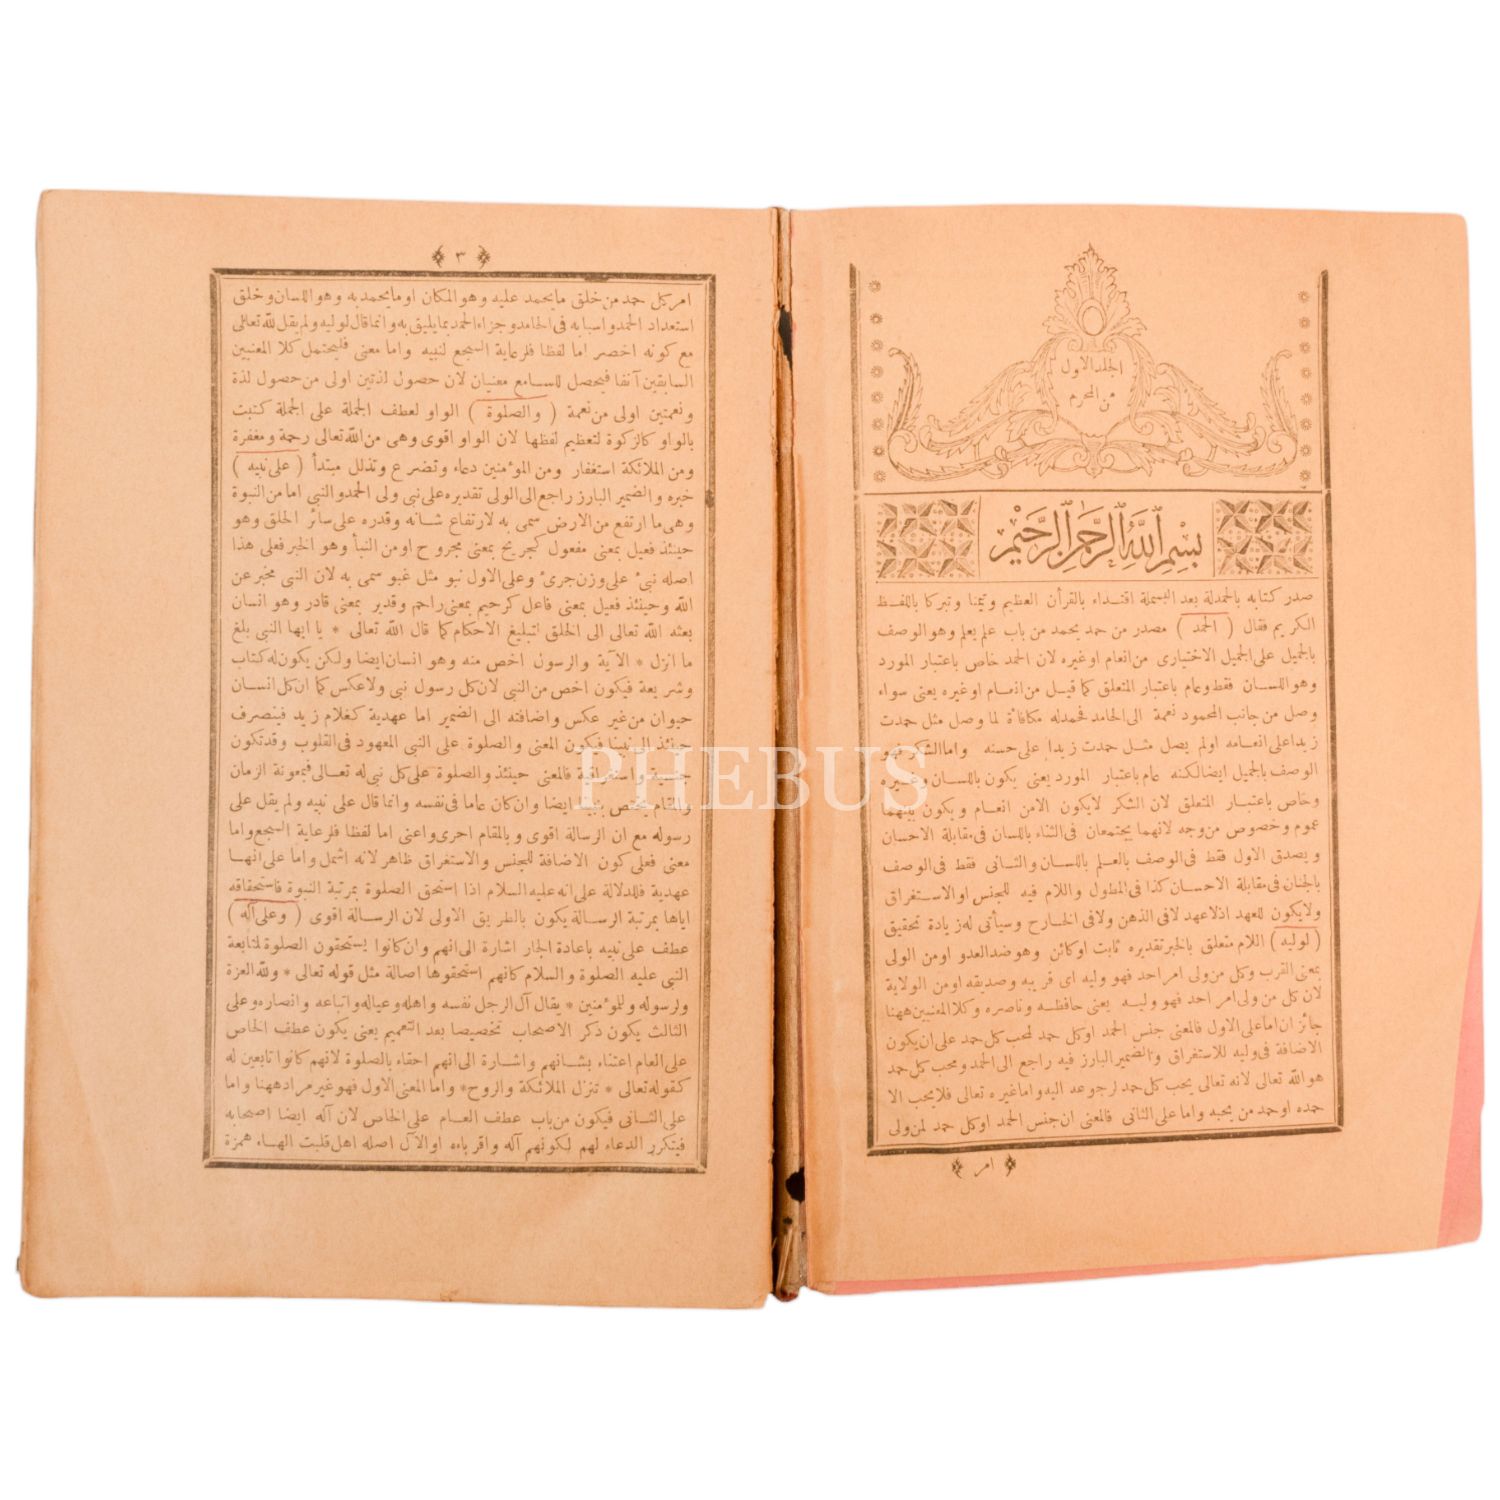 الجلد الاول
من المحرم
بسم الله الرحمن الرحيم
صدر كتابه بالحمدلة بعد البسملة اقتداء بالقرأن العظيم وتيمنا وتبركا باللفظ
الكريم فقال ( الحمد ) مصدر من حمد يحمد من باب علم يعلم وهو الوصف
بالجميل على الجميل الاختيارى من انعام او غيره لان الحمد خاص باعتبار المورد
وهو اللسان فقط وعام باعتبار المتعلق كما قيل من انعام او غيره يعنى سواء
وصل من جانب المحمود نعمة الى الحامد فحمدله مكافأة لما وصل مثل حمدت
زيدا على انعامه اولم يصل مثل حمدت زيدا على حسنه واما الشكر فهو
الوصف بالجميل ايضا لكنه عام باعتبار المورد يعنى يكون باللسان وغيره
وخاص باعتبار المتعلق لان الشكر لايكون الا من انعام ويكون بينهما
عموم وخصوص من وجه لانهما يجتمعان فى الثناء باللسان فى مقابلة الاحسان
ويصدق الاول فقط فى الوصف بالعلم باللسان والثانى فقط فى الوصف
بالجنان فى مقابلة الاحسان كذا فى المطول واللام فيه للجنس او الاستغراق
ولايكون للعهد اذلا عهد لافى الذهن ولافى الخارج وسيأتى له زيادة تحقيق
( لوليه ) اللام متعلق بالخبر تقديره ثابت او كائن وهو ضد العدو اومن الولى
بمعنى القرب وكل من ولى امر احد فهو وليه اى قريبه وصديقه اومن الولاية
لان كل من ولى امر احد فهو وليه يعنى حافظه وناصره وكلا المعنيين ههنا
جائز ان اما على الاول فالمعنى جنس الحمد او كل حمد لمحب كل حمد على ان يكون
الاضافة فى وليه للاستغراق والضمير البارز فيه راجع الى الحمد ومحب كل حمد
هو الله تعالى لانه تعالى يحب كل حمد لرجوعه اليه واما غيره تعالى فلا يحب الا
حمده او حمد من يحبه واما على الثانى فالمعنى ان جنس الحمد او كل حمد لمن ولى
امر
٣
امر كل حمد من خلق مايحمد عليه وهو المكان او مايحمد به وهو اللسان وخلق
استعداد الحمد واسبابه فى الحامد وجزاء الحمد بما يليق به وانما قال لوليه ولم يقل لله تعالى
مع كونه اخصر اما لفظا فلرعاية السجع لنبيه واما معنى فليحتمل كلا المعنيين
السابقين آنفا فيحصل للسامع معنيان لان حصول لذتين اولى من حصول لذة
ونعمتين اولى من نعمة ( والصلوة ) الواو لعطف الجملة على الجملة كتبت
بالواو كالزكوة لتعظيم لفظها لان الواو اقوى وهى من الله تعالى رحمة ومغفرة
ومن الملائكة استغفار ومن المؤمنين دعاء وتضرع وتذلل مبتدأ ( على نبيه )
خبره والضمير البارز راجع الى الولى تقديره على نبى ولى الحمد والنبى اما من النبوة
وهى ما ارتفع من الارض سمى به لارتفاع شانه وقدره على سائر الخلق وهو
حينئذ فعيل بمعنى مفعول كجريح بمعنى مجروح اومن النبأ وهو الخبر فعلى هذا
اصله نبئ على وزن جرئ وعلى الاول نبو مثل غبو سمى به لان النبى مخبر عن
الله وحينئذ فعيل بمعنى فاعل كرحيم بمعنى راحم وقدير بمعنى قادر وهو انسان
بعثه الله تعالى الى الخلق لتبليغ الاحكام كما قال الله تعالى * يا ايها النبى بلغ
ما انزل * الآية والرسول اخص منه وهو انسان ايضا ولكن يكون له كتاب
وشريعة فيكون اخص من النبى لان كل رسول نبى ولا عكس كما ان كل انسان
حيوان من غير عكس واضافته الى الضمير اما عهدية كغلام زيد فينصرف
حينئذ الى نبينا فيكون المعنى والصلوة على النبى المعهود فى القلوب وقد تكون
جنسية واستغراقية فالمعنى حينئذ والصلوة على كل نبى له تعالى فبمعونة الزمان
والمقام يختص بنبينا ايضا وان كان عاما فى نفسه وانما قال على نبيه ولم يقل على
رسوله مع ان الرسالة اقوى وبالمقام احرى واعنى اما لفظا فلرعاية السجع واما
معنى فعلى كون الاضافة للجنس والاستغراق ظاهر لانه اشمل واما على انها
عهدية فللدلالة على انه عليه السلام اذا استحق الصلوة بمرتبة النبوة فاستحقاقه
اياها بمرتبة الرسالة يكون بالطريق الاولى لان الرسالة اقوى ( وعلى آله )
عطف على نبيه باعادة الجار اشارة الى انهم وان كانوا يستحقون الصلوة لمتابعة
النبى عليه الصلوة والسلام كانهم استحقوها اصالة مثل قوله تعالى * ولله العزة
ولرسوله وللمؤمنين * يقال آل الرجل نفسه واهله وعياله واتباعه وانصاره وعلى
الثالث يكون ذكر الاصحاب تخصيصا بعد التعميم يعنى يكون عطف الخاص
على العام اعتناء بشانهم واشارة الى انهم احقاء بالصلوة لانهم كانوا تابعين له
كقوله تعالى * تنزل الملائكة والروح * واما المعنى الاول فهو غير مراد ههنا واما
على الثانى فيكون من باب عطف العام على الخاص لان آله ايضا اصحابه
فيتكرر الدعاء لهم لكونهم آله واقرباءه او الآل اصله اهل قلبت الهاء همزة
PHEBUS